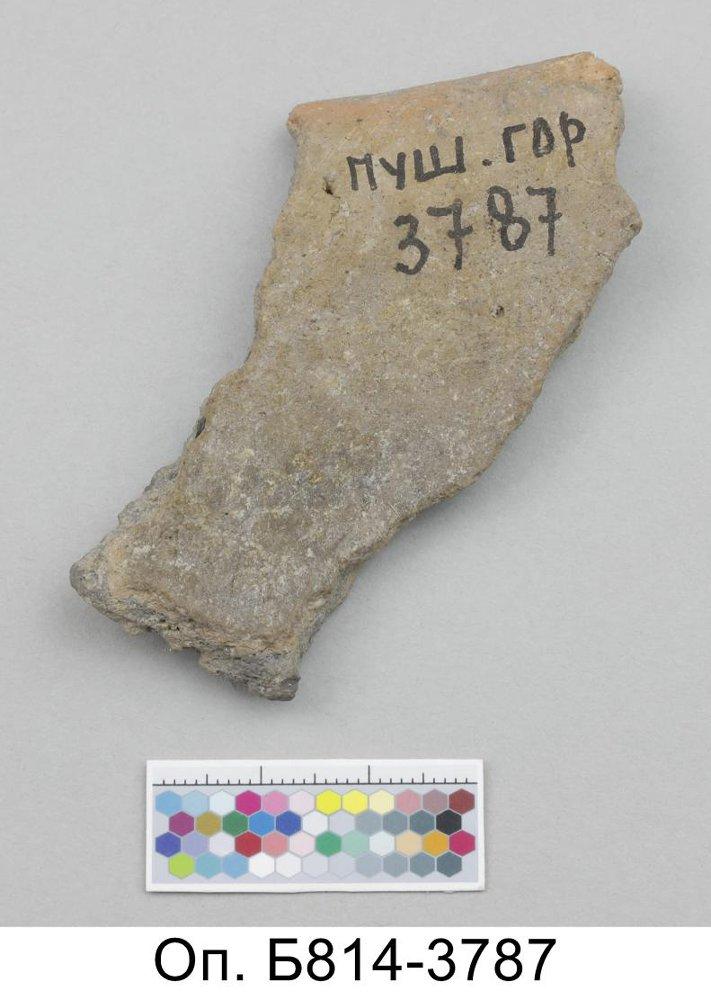 пуш. гор
3787
Оп. Б814-3787